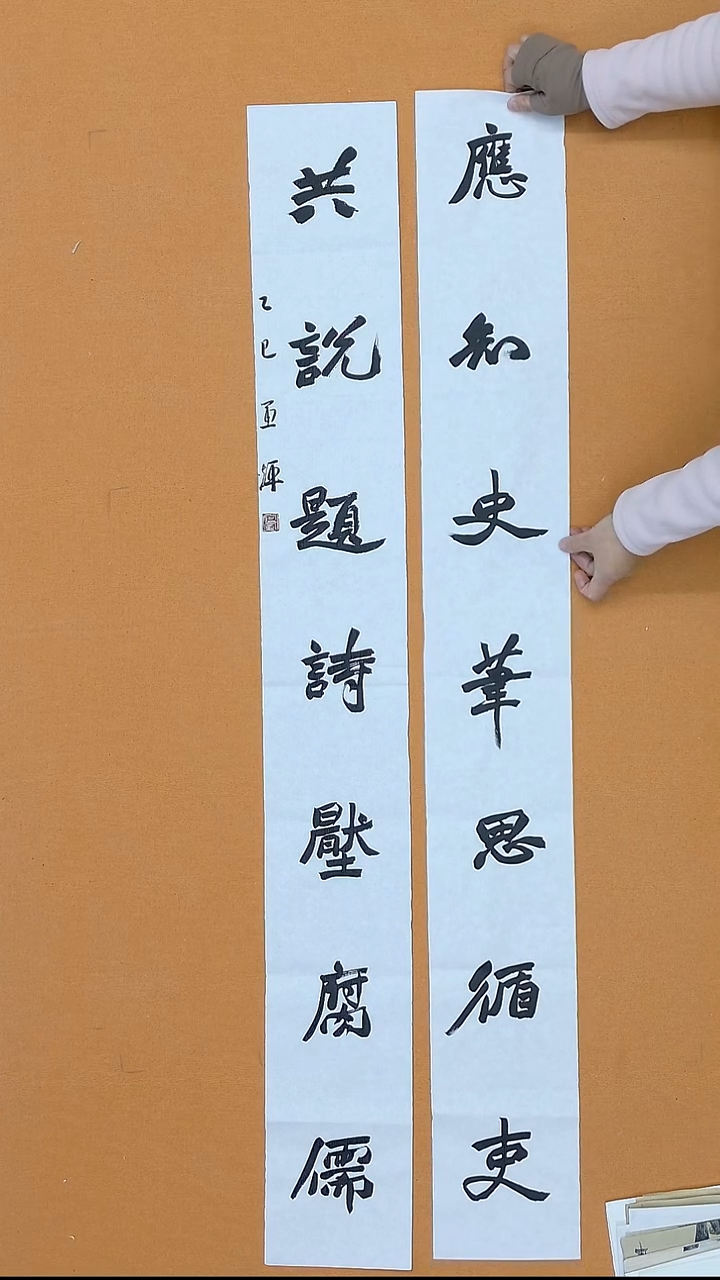 應知史筆思循吏
共說題詩壓腐儒
乙巳亚輝